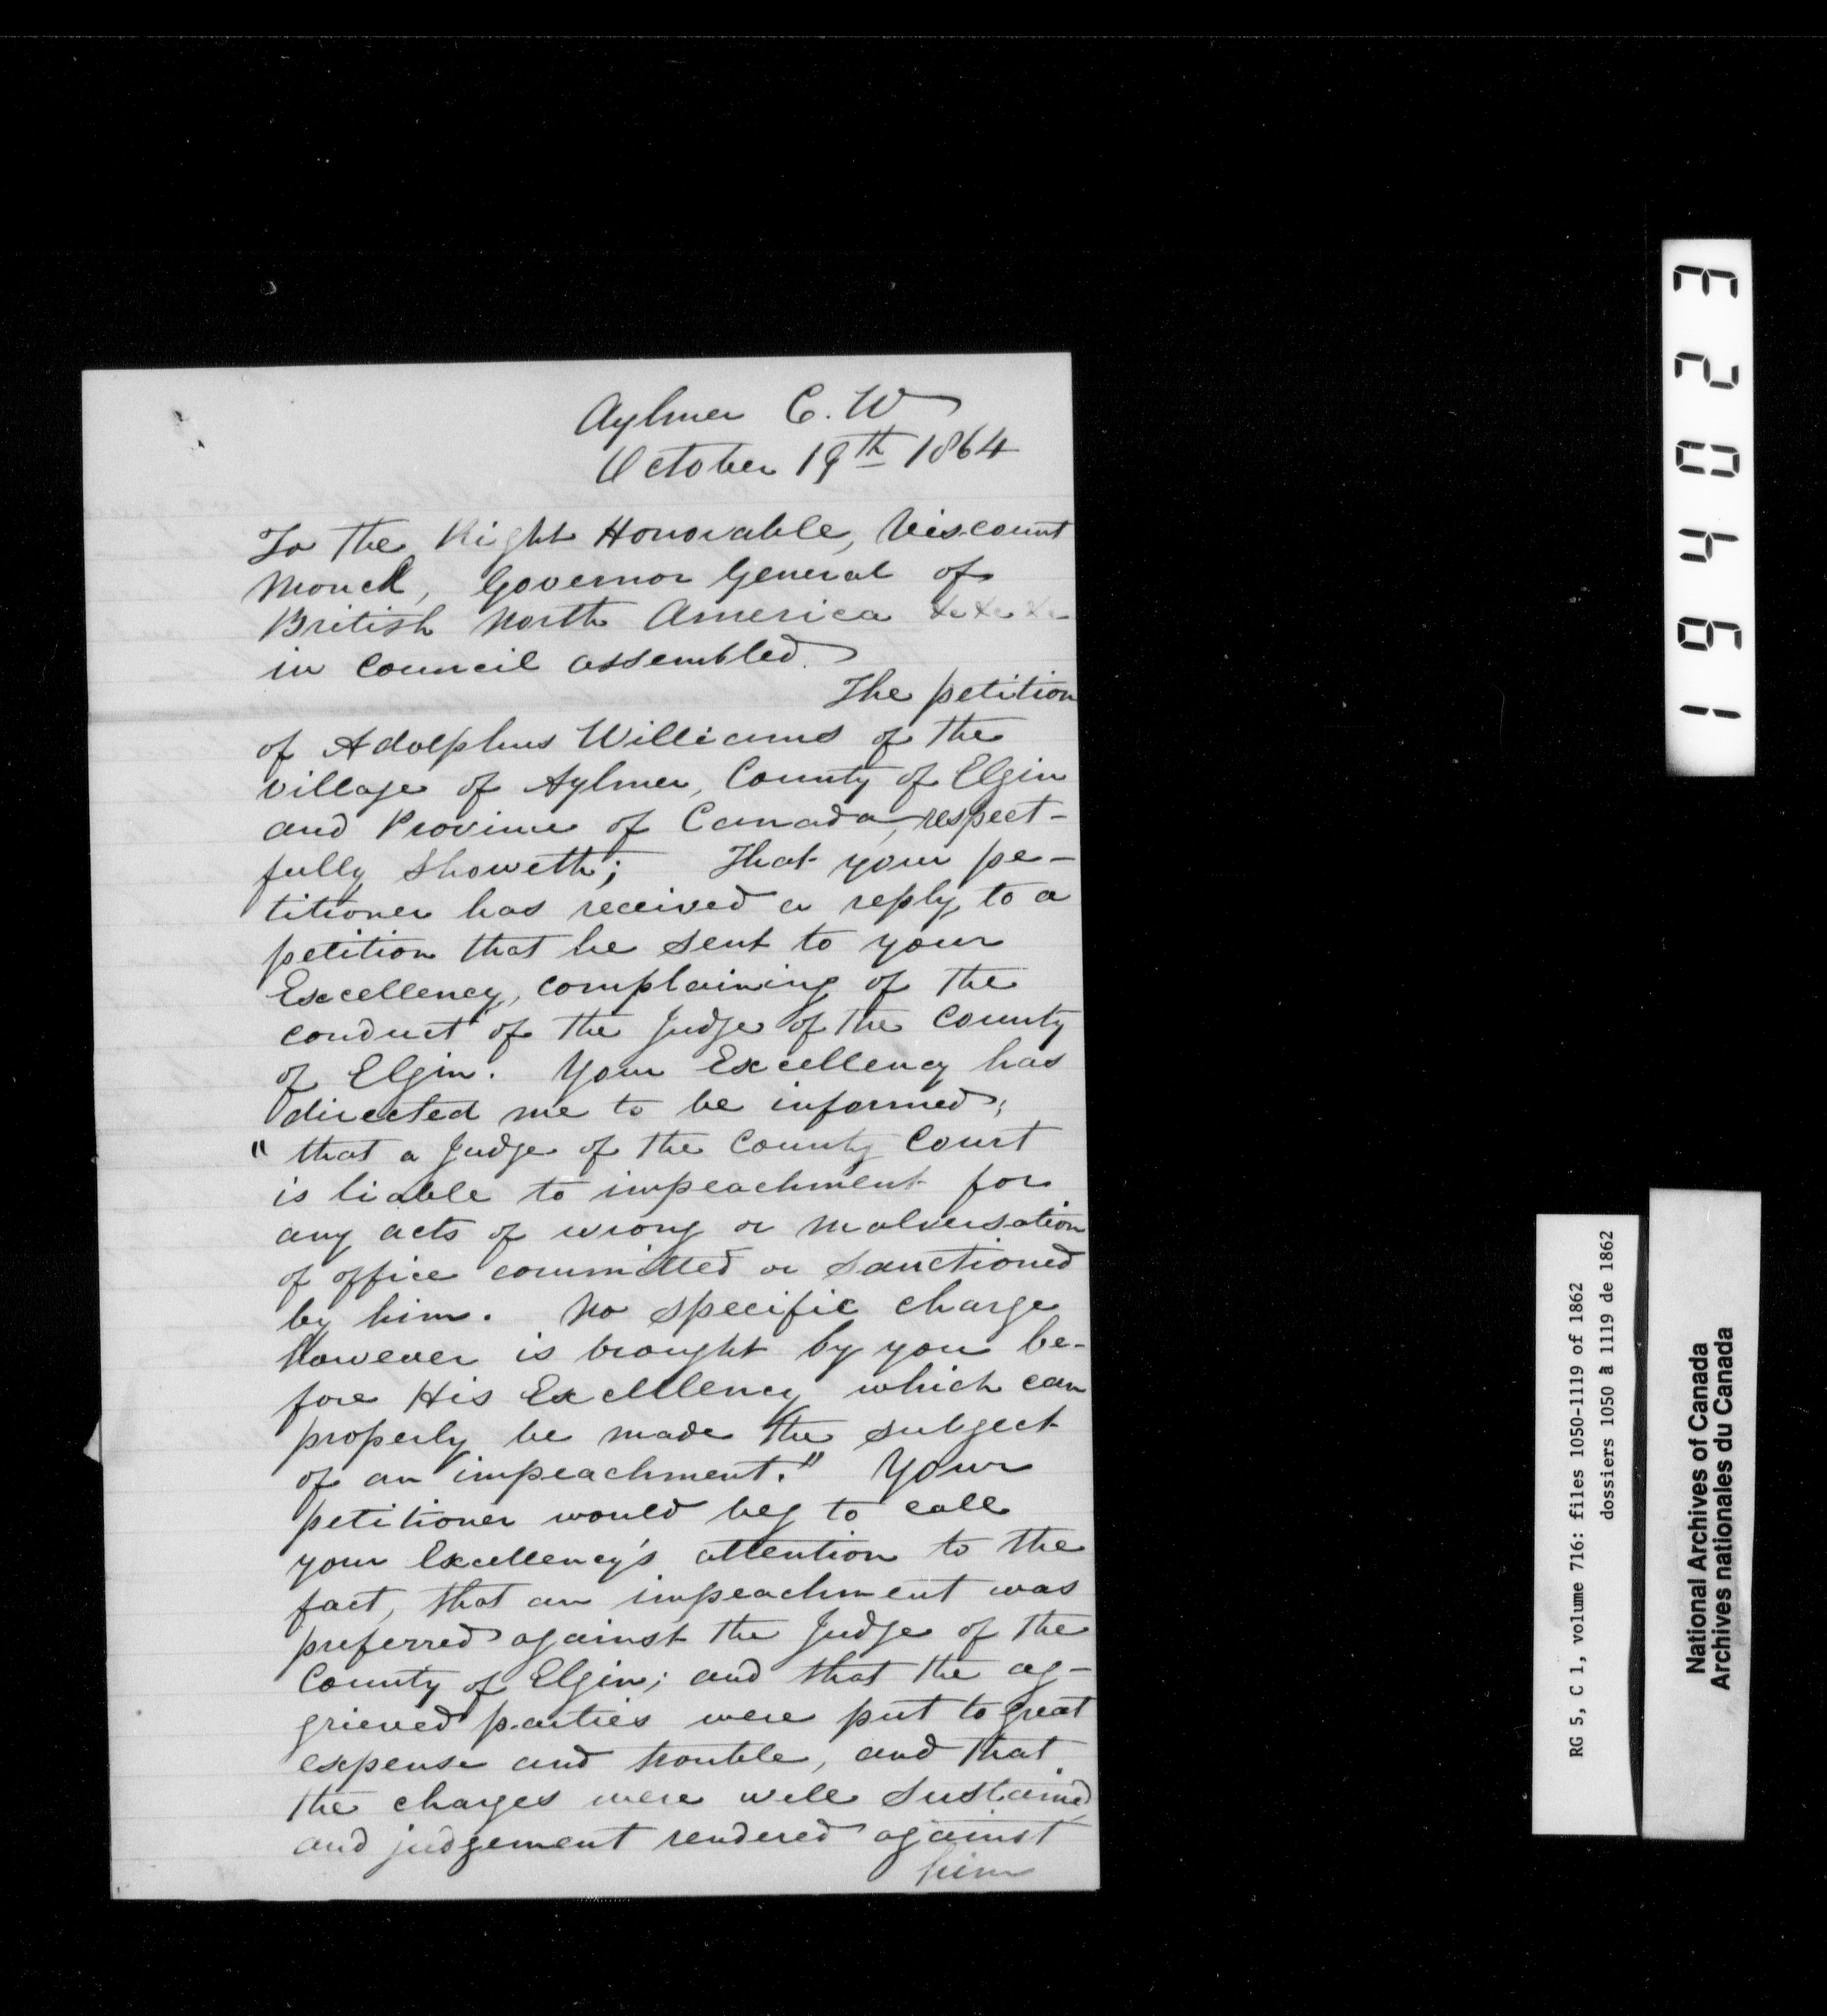 Aylmer C. W
October 19th 1864
To the Right Honorable, Viscount
Monck, Governor General of
British North America &c &c &c
in Council assembled.
The petition
of Adolphus Williams of the
village of Aylmer, County of Elgin
and Province of Canada, respect-
fully Showeth; That your pe-
titioner has received a reply to a
petition that he sent to your
Excellency, complaining of the
conduct of the Judge of the County
of Elgin. Your Excellency has
directed me to be informed;
" that a Judge of the County Court
is liable to impeachment for
any acts of wrong or malversation
of office committed or sanctioned
by him. No specific charge
however is brought by you be-
fore His Excellency which can
properly be made the subject
of an impeachment." Your
petitioner would beg to call
your Excellency's attention to the
fact, that an impeachment was
preferred against the Judge of the
County of Elgin; and that the ag-
grieved parties were put to great
expense and trouble, and that
the charges were well sustained
and judgement rendered against
him
194023
RG 5, C 1, volume 716: files 1050-1119 of 1862
dossiers 1050 à 1119 de 1862
National Archives of Canada
Archives nationales du Canada